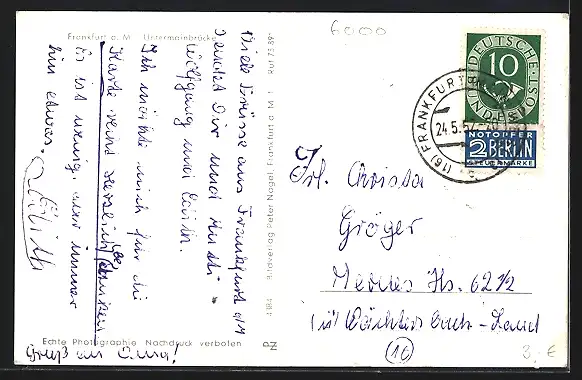 Frankfurt a. M. Untermainbrücke
Viele Grüsse aus Frankfurt a/M
sendet Dir und Heidi-
Wolfgang und Edith.
Ich möchte mich für die
Karte recht herzlich bedanken
Es ist wenig aber immer
hin etwas.
Edith
Gruß an Oma!
Echte Photographie Nachdruck verboten
4184 Bildverlag Peter Nagel, Frankfurt a. M. 1 Ruf 7389
PN
6000
DEUTSCHE BUNDESPOST
10
NOTOPFER
2 BERLIN
STEUERMARKE
(16) FRANKFURT
24.5.52
Frl. Christa
Gröger
Hs. 62 1/2
(16)
3,- €